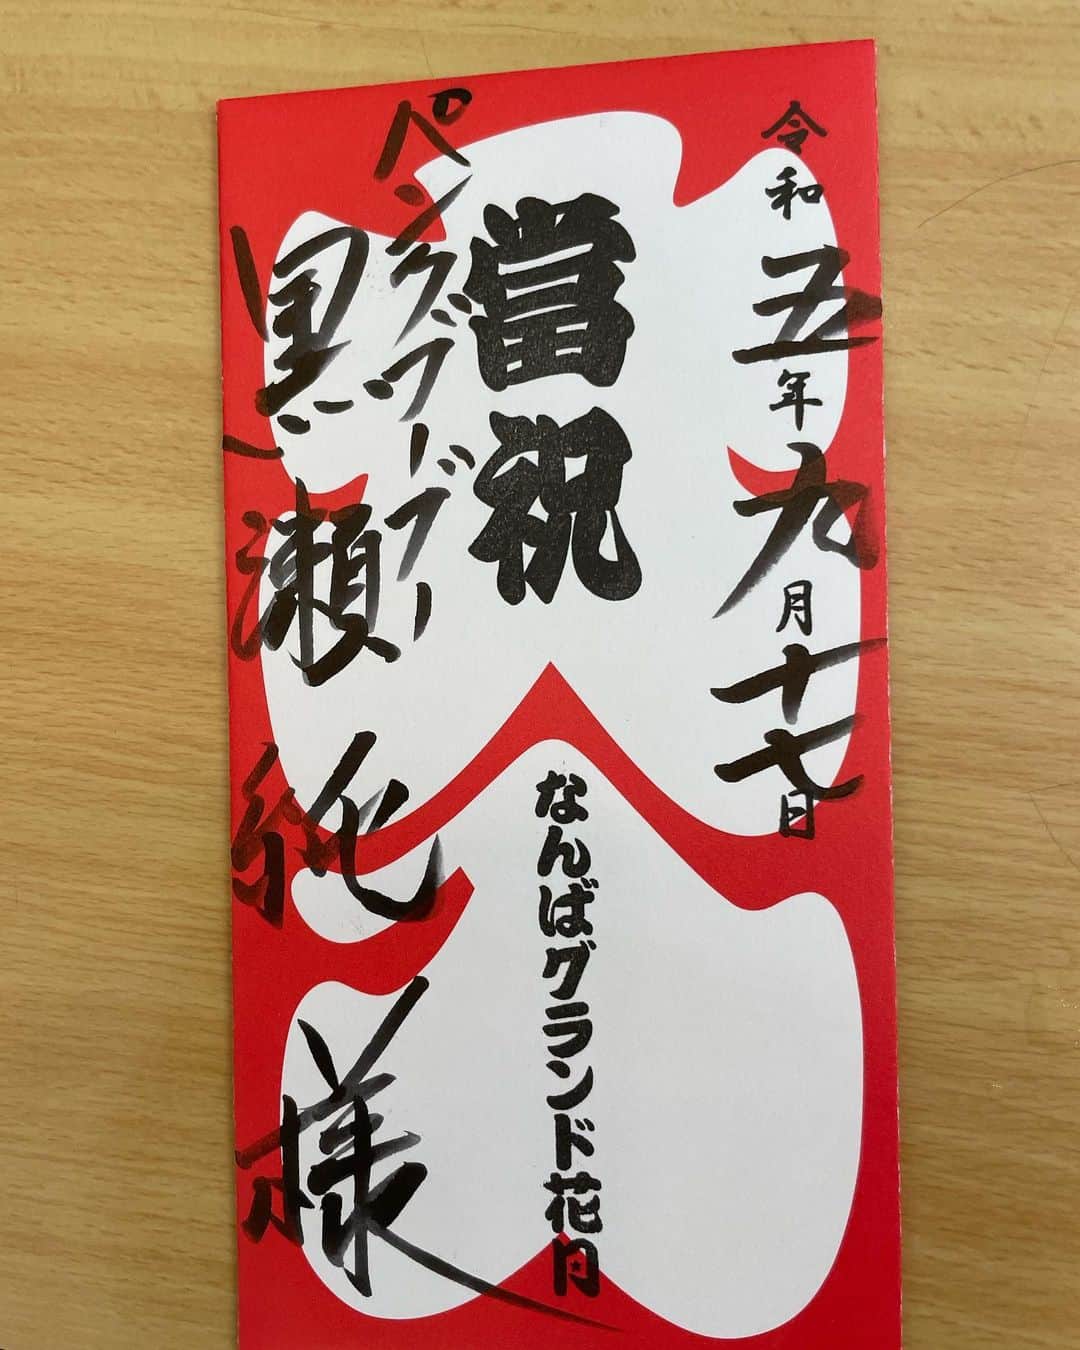 令和五年九月十七日
當祝
なんばグランド花月
ペングブブードブー
黒瀬純様